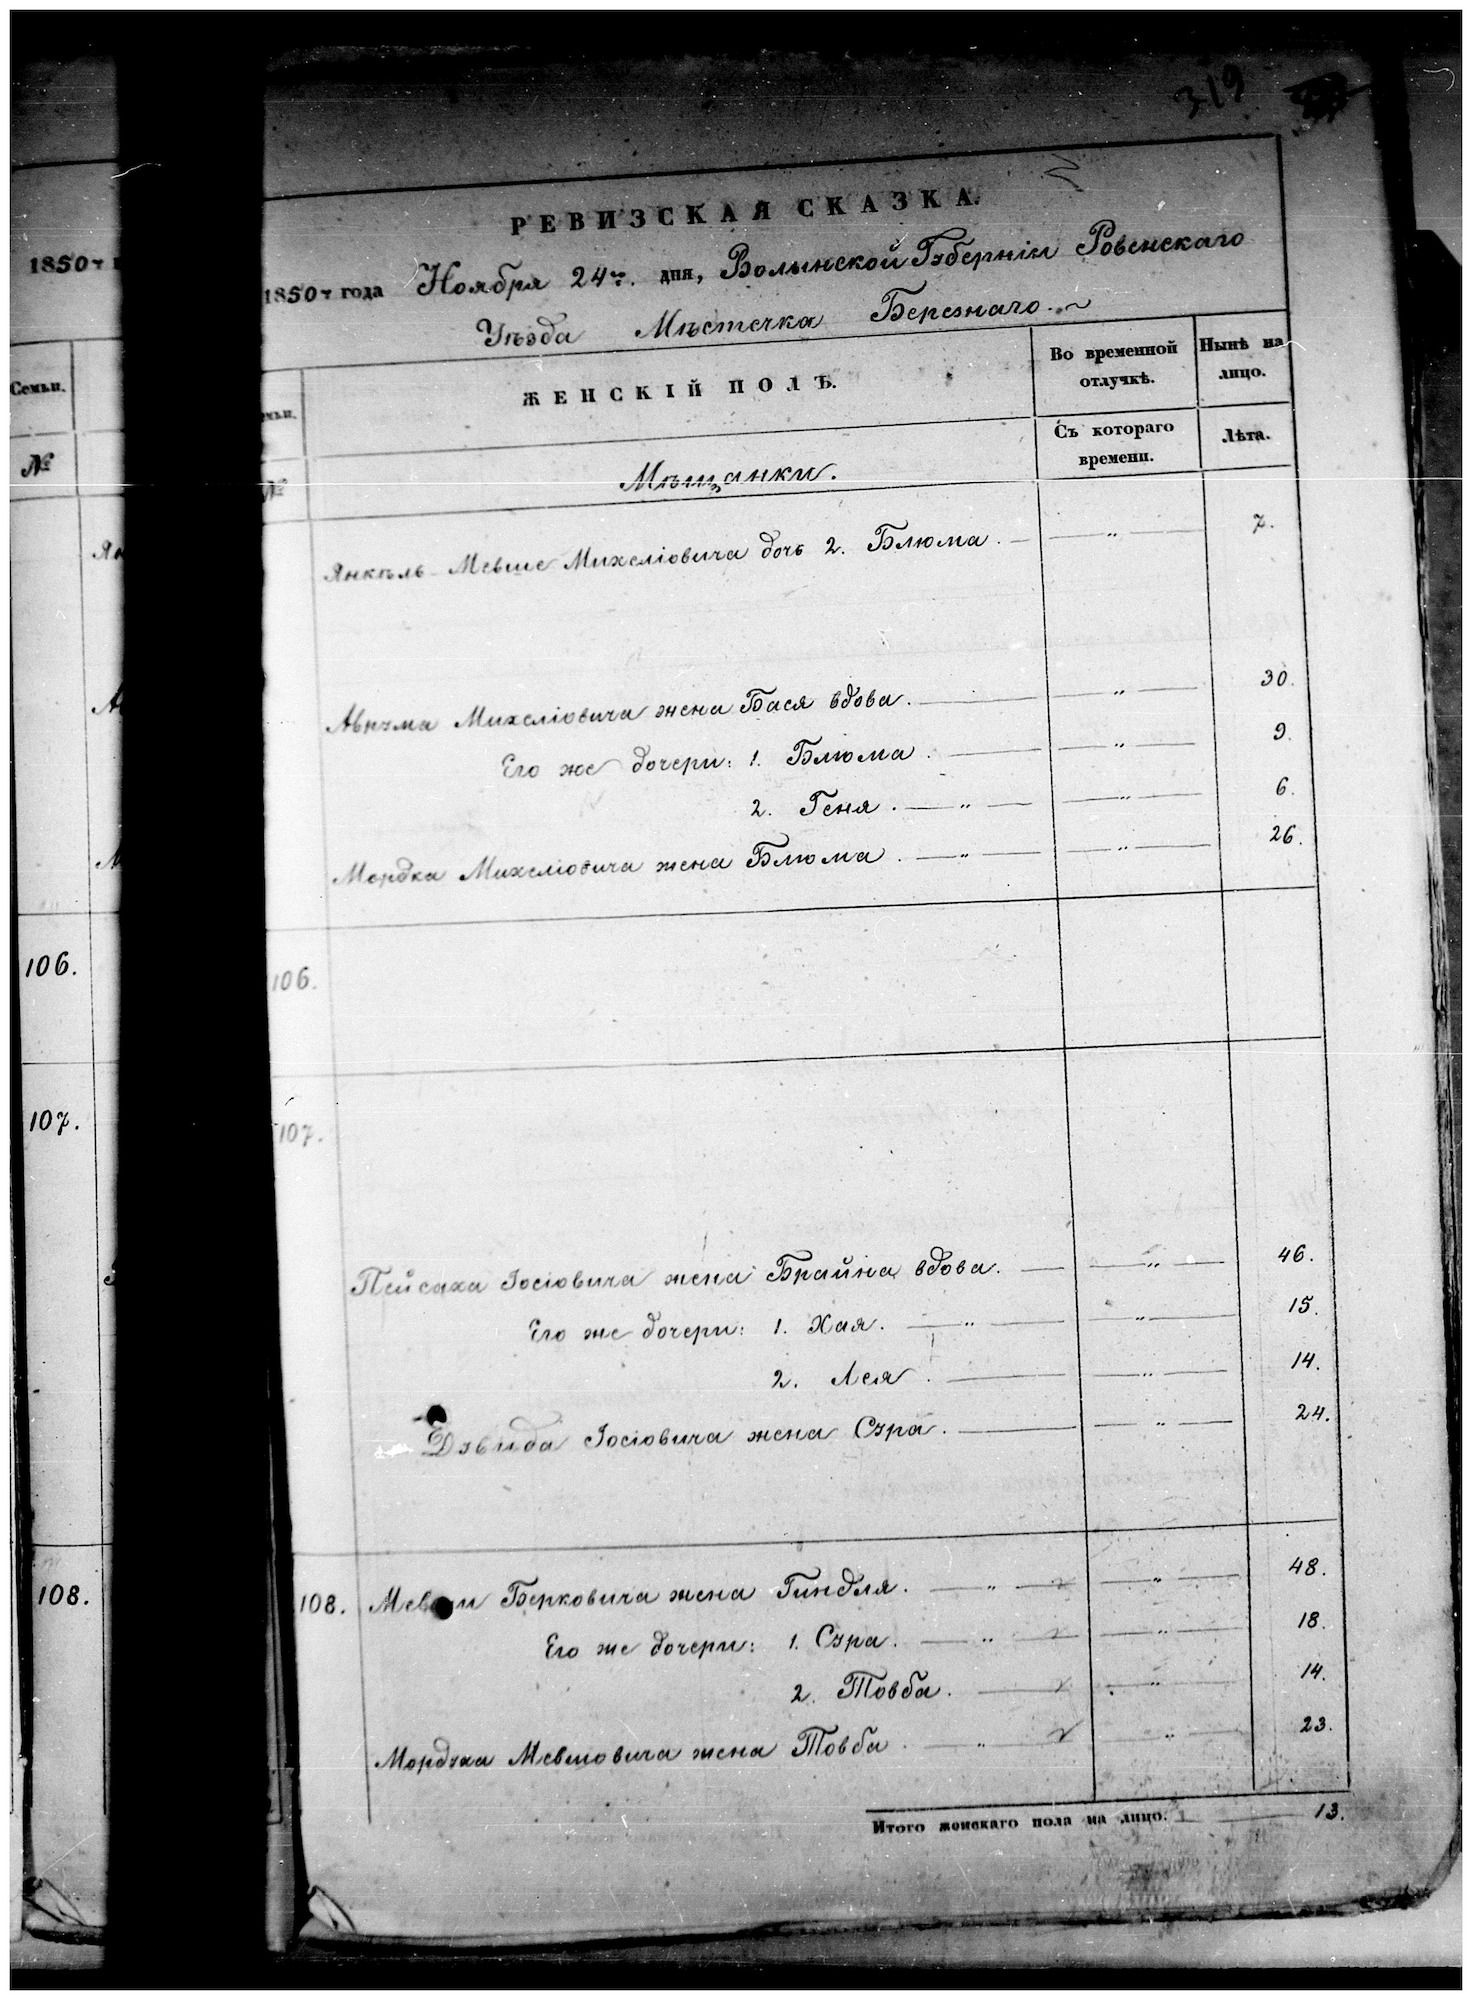 319
РЕВИЗСКАЯ СКАЗКА.
1850 г года Ноября 24го. дня, Волынской Губерніи Ровенскаго
Уѣзда Мѣстечка Березнаго.
1850 г
Семьи.
№
ЖЕНСКІЙ ПОЛЪ.
Во временной отлучкѣ.
Нынѣ на лицо.
№
Мѣщанки.
Съ котораго времени.
Лѣта.
Янкель Мевше Михеліовича дочь 2. Блюма. — " — 7.
Аврума Михеліовича жена Бася вдова. — " — 30.
Его же дочери: 1. Блюма. — " — 9.
2. Геня. — " — " — 6.
Мордка Михеліовича жена Блюма. — " — " — 26.
106. 106.
107. 107.
Пейсаха Іосіовича жена Брайна вдова. — " — 46.
Его же дочери: 1. Хая. — " — " — 15.
2. Лея. — " — 14.
Дэвида Іосіовича жена Сура. — " — 24.
108. 108. Мевши Берковича жена Гиндля. — " — " — 48.
Его же дочери: 1. Сура. — " — " — 18.
2. Товба. — " — 14.
Мордуха Мевшовича жена Товба. — " — " — 23.
Итого женскаго пола на лицо. — 13.